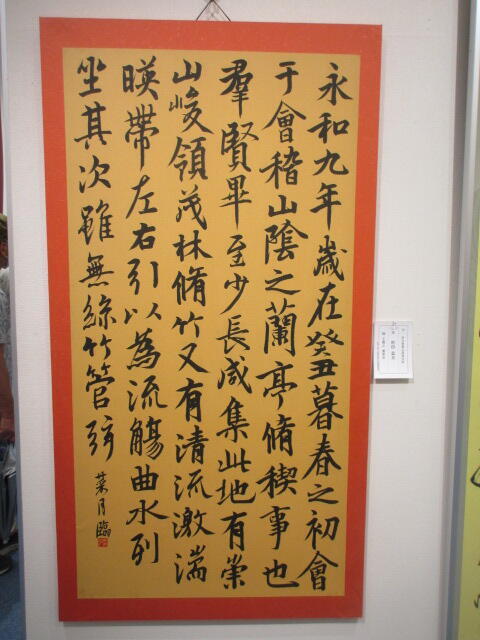 永和九年歳在癸丑暮春之初會
于會稽山陰之蘭亭脩稧事也
羣賢畢至少長咸集此地有崇
山峻領茂林脩竹又有清流激湍
暎帶左右引以為流觴曲水列
坐其次雖無絲竹管弦
菜月臨